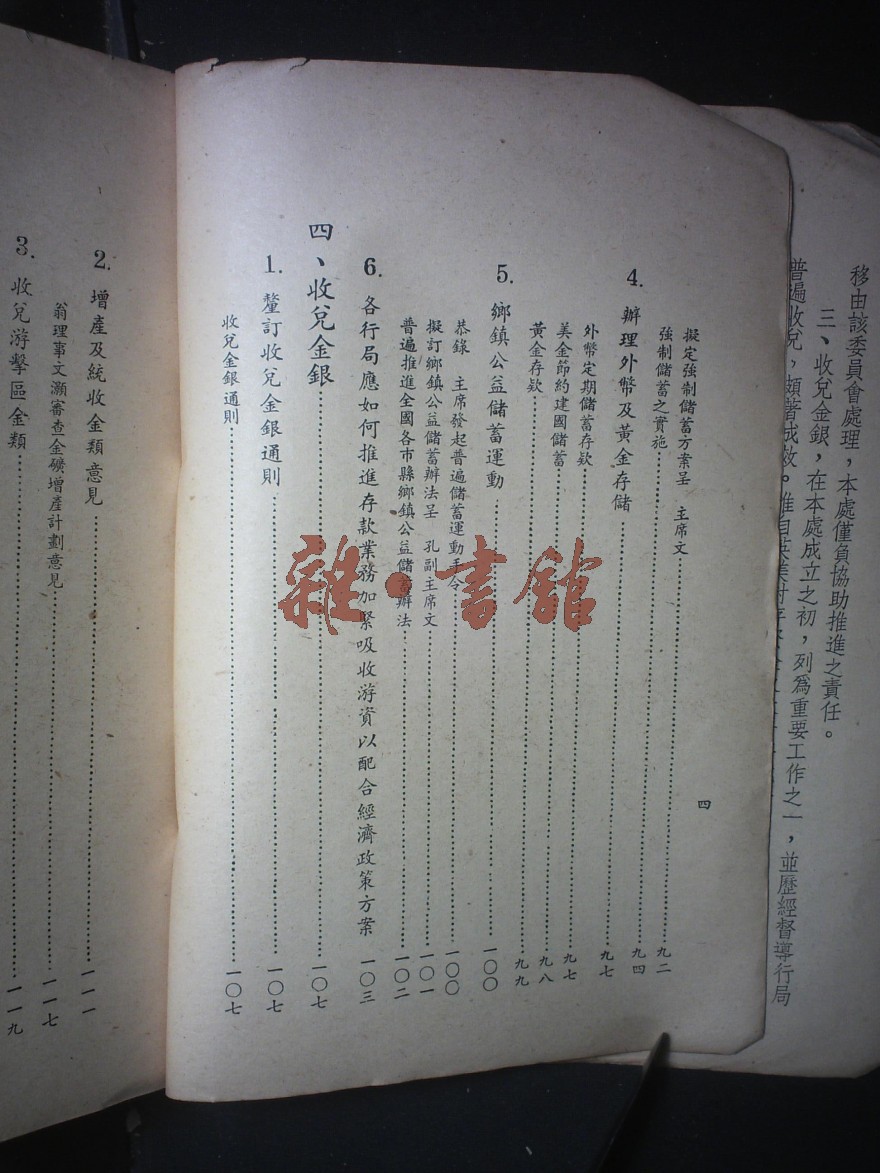 移由該委員會處理，本處僅負協助推進之責任。
三、收兌金銀，在本處成立之初，列爲重要工作之一，並歷經督導行局
普遍收兌，頗著成效。惟自英美對
四
擬定強制儲蓄方案呈　主席文……九二
強制儲蓄之實施……九四
4. 辦理外幣及黃金存儲……九七
外幣定期儲蓄存款……九七
美金節約建國儲蓄……九八
黃金存款……九九
5. 鄉鎮公益儲蓄運動……一〇〇
恭錄　主席發起普遍儲蓄運動手令……一〇〇
擬訂鄉鎮公益儲蓄辦法呈　孔副主席文……一〇一
普遍推進全國各市縣鄉鎮公益儲蓄辦法……一〇二
6. 各行局應如何推進存款業務加緊吸收游資以配合經濟政策方案　一〇三
四、收兌金銀……一〇七
1. 釐訂收兌金銀通則……一〇七
收兌金銀通則……一〇七
2. 增產及統收金類意見……一一一
翁理事文灝審查金礦增產計劃意見……一一七
3. 收兌游擊區金類……一一九
雜·書館